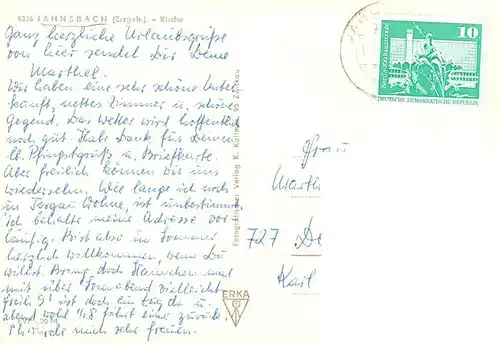 9376 JAHNSBACH (Erzgebr.) – Kirche
Ganz herzliche Urlaubsgrüße
von hier sendet Dir Deine
Marthel.
Wir haben eine sehr schöne Unter-
kunft, nettes Zimmer u. schöne
Gegend. Das Wetter wird hoffentlich
noch gut. Hab Dank für Deinen
lb. Pfingstgruß u. Briefkarte.
Aber freilich können wir uns
wiedersehn. Wie lange ich noch
in Torgau wohne, ist unbestimmt,
ich behalte meine Adresse vor-
läufig. Bist also im Sommer
herzlich willkommen, wenn Du
willst. Bring doch Hannchen mal
mit über Sonnabend vielleicht
früh 9 ist doch ein Zug da u.
abend wohl 1/2 8 fährt einer zurück.
mich sehr freuen.
Fotografischer Verlag K.
ERKA
10
DEUTSCHE DEMOKRATISCHE REPUBLIK
Frau
Marth
727 De
Karl